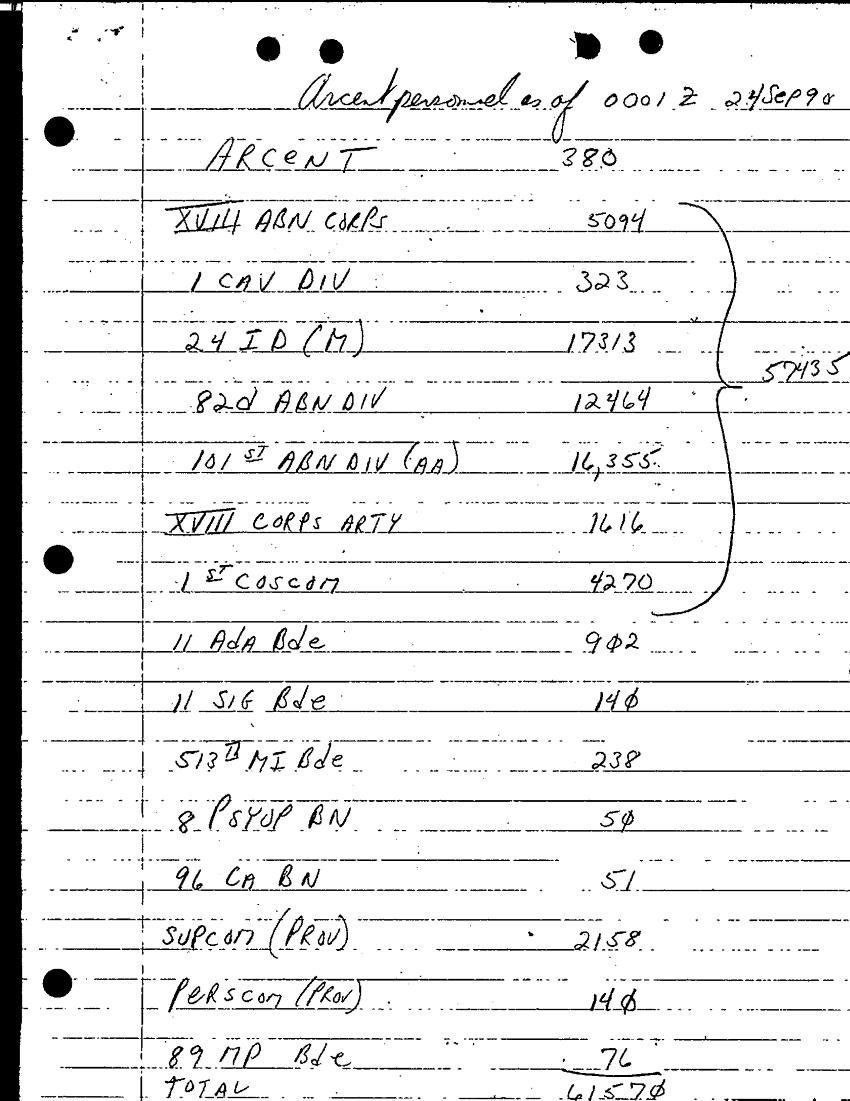 Arcent personnel as of 0001 Z 24 Sep 90
ARCENT 380
XVIII ABN CORPS 5094
1 CAV DIV 323
24 ID (M) 17313
57435
82d ABN DIV 12464
101 ST ABN DIV (AA) 16,355
XVIII CORPS ARTY 1616
1 ST COSCOM 4270
11 AdA Bde 902
11 SIG Bde 140
513 th MI Bde 238
8 PSYOP BN 50
96 CA BN 51
SUPCOM (PROV) 2158
PERSCOM (PROV) 140
89 MP Bde 76
TOTAL 61570